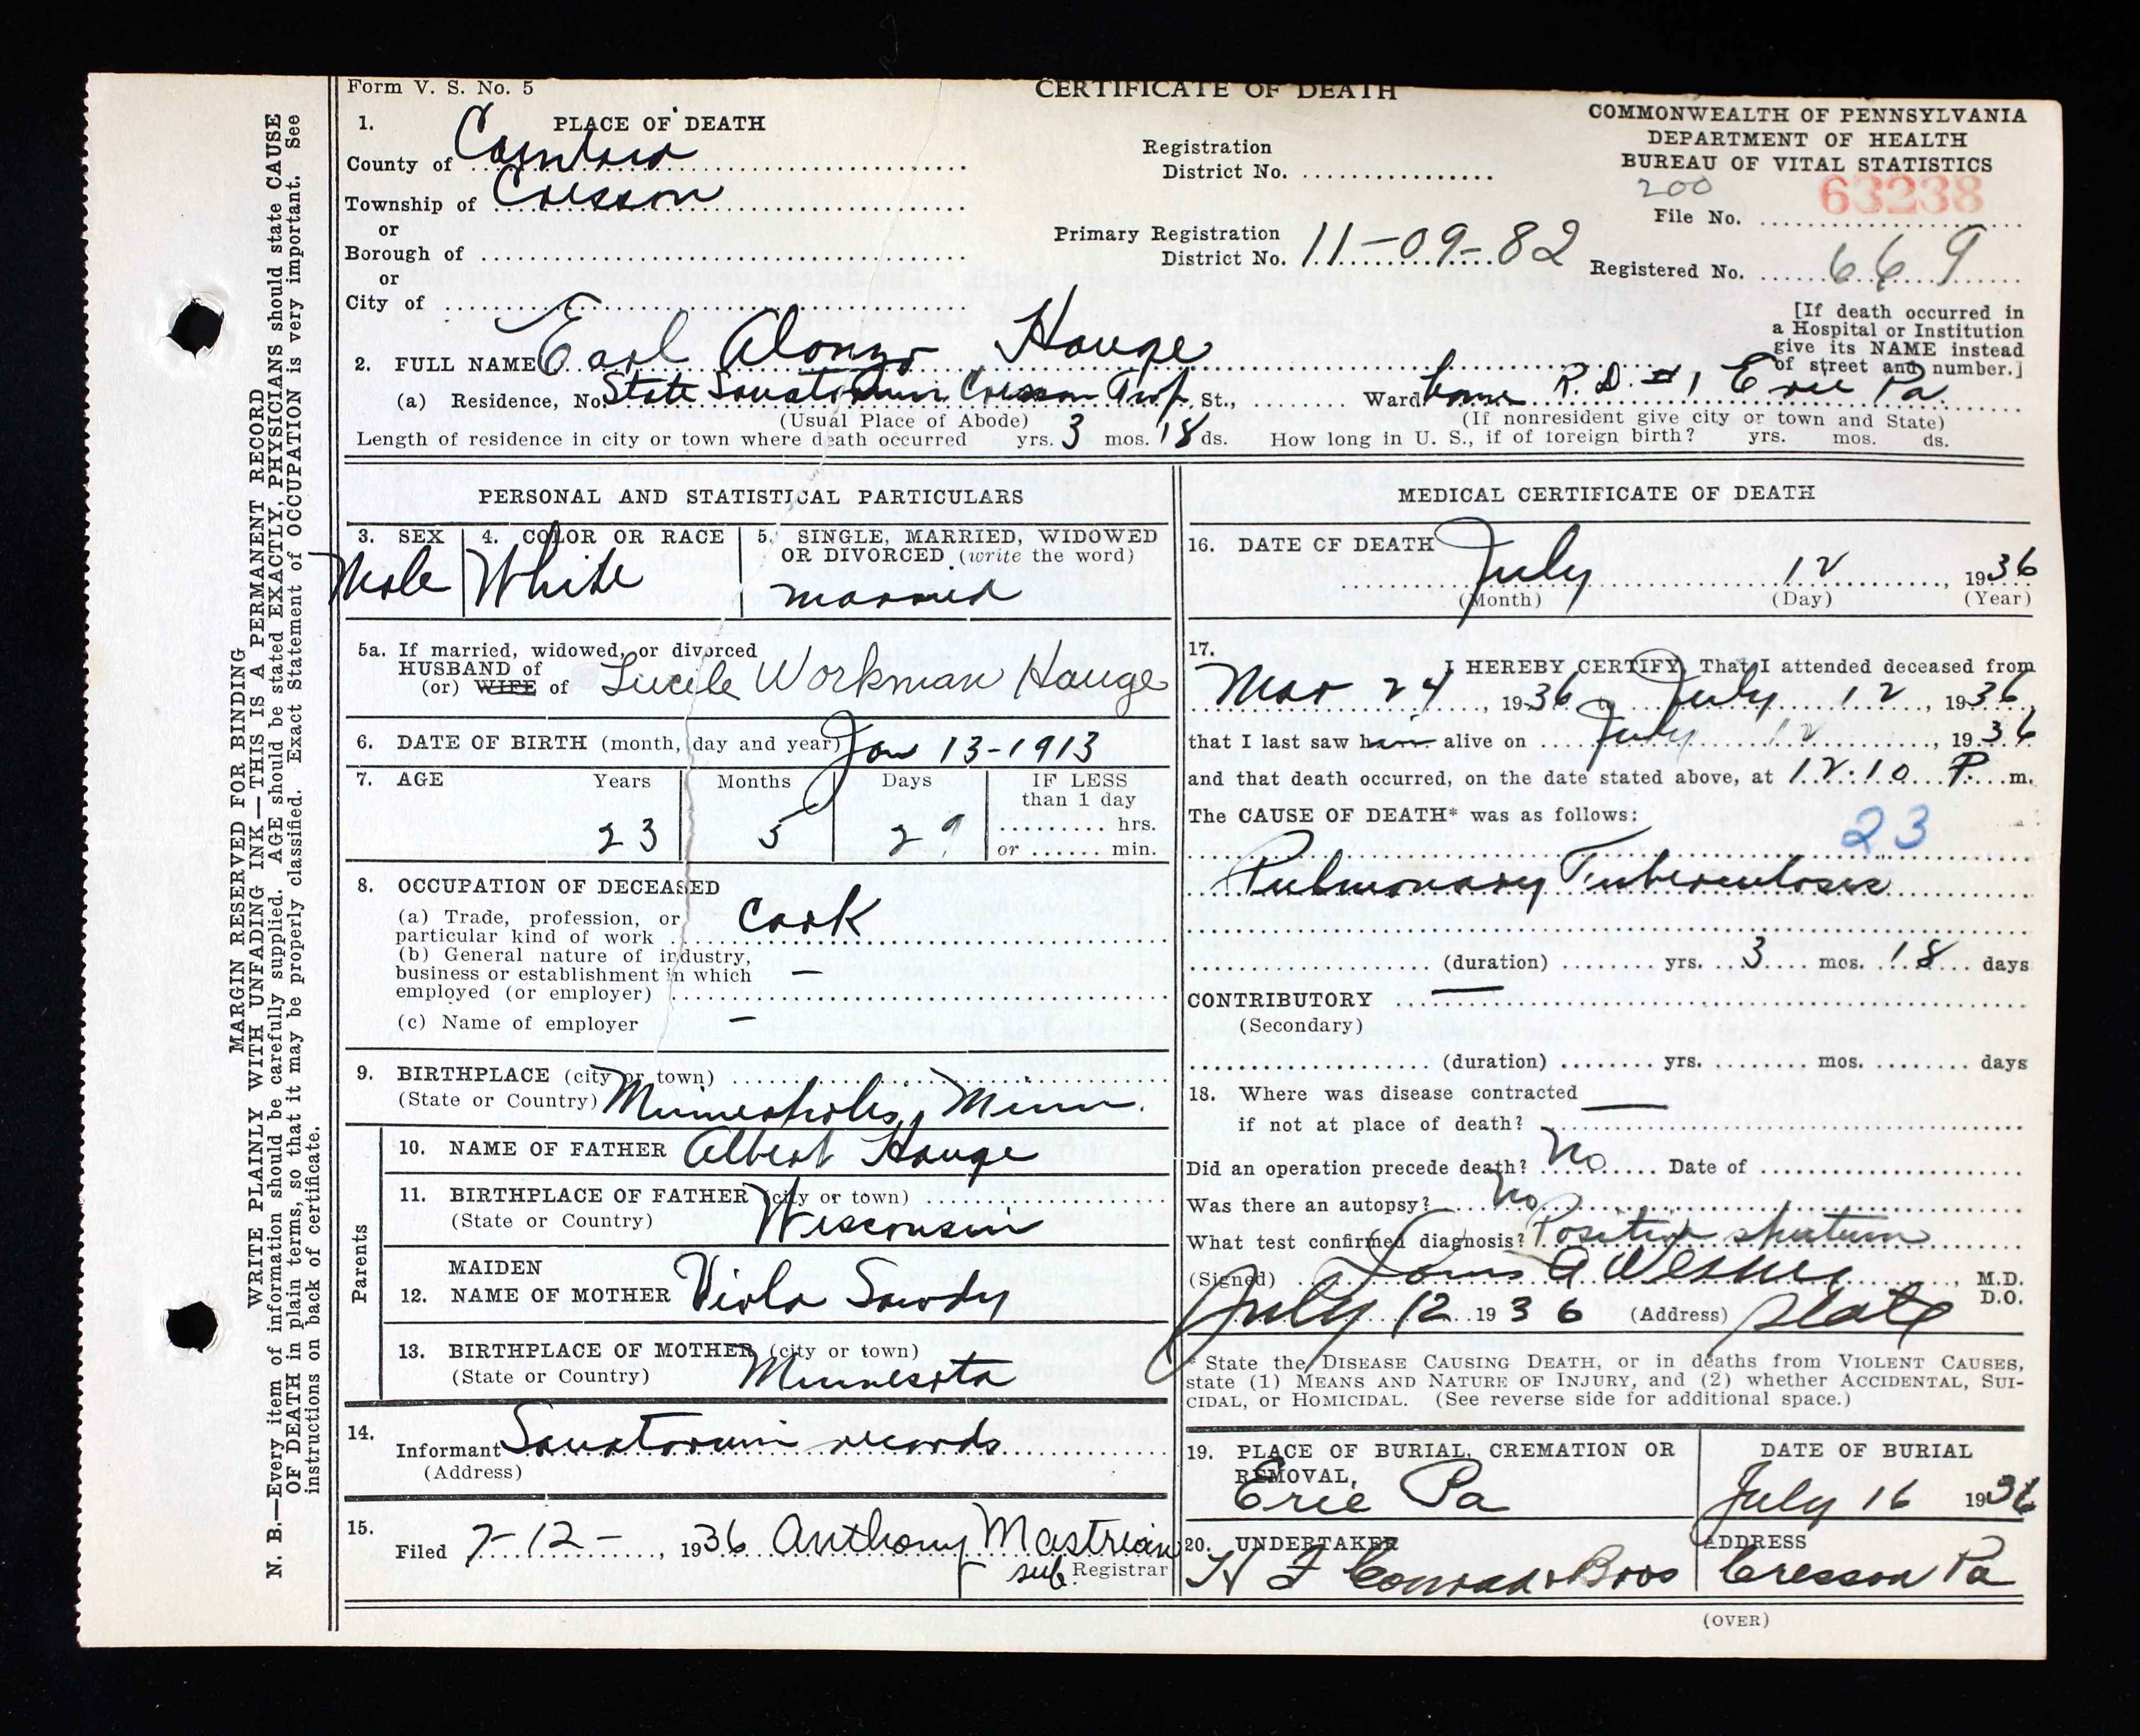 Form V. S. No. 5
CERTIFICATE OF DEATH
COMMONWEALTH OF PENNSYLVANIA
DEPARTMENT OF HEALTH
BUREAU OF VITAL STATISTICS
1. PLACE OF DEATH
County of Cambria
Township of Cresson
or
Borough of
or
City of
Registration
District No.
Primary Registration
District No. 11-09-82
200
File No. 63238
Registered No. 669
[If death occurred in
a Hospital or Institution
give its NAME instead
of street and number.]
2. FULL NAME Earl Alonzo Hauge
(a) Residence, No. State Sanatorium Cresson Twp. St., Ward. home R.D. #1 Erie Pa
(Usual Place of Abode) (If nonresident give city or town and State)
Length of residence in city or town where death occurred yrs. 3 mos. 18 ds. How long in U. S., if of foreign birth? yrs. mos. ds.
PERSONAL AND STATISTICAL PARTICULARS
3. SEX Male
4. COLOR OR RACE White
5. SINGLE, MARRIED, WIDOWED
OR DIVORCED (write the word)
married
5a. If married, widowed, or divorced
HUSBAND of
(or) WIFE of Lucile Workman Hauge
6. DATE OF BIRTH (month, day and year) Jan 13-1913
7. AGE Years Months Days IF LESS
than 1 day
23 5 29 hrs.
or min.
8. OCCUPATION OF DECEASED
(a) Trade, profession, or
particular kind of work cook
(b) General nature of industry,
business or establishment in which
employed (or employer) —
(c) Name of employer —
9. BIRTHPLACE (city or town)
(State or Country) Minneapolis, Minn.
Parents
10. NAME OF FATHER Albert Hauge
11. BIRTHPLACE OF FATHER (city or town)
(State or Country) Wisconsin
MAIDEN
12. NAME OF MOTHER Viola Sawdy
13. BIRTHPLACE OF MOTHER (city or town)
(State or Country) Minnesota
14.
Informant Sanatorium records
(Address)
15.
Filed 7-12-, 1936 Anthony Mastrian
sub. Registrar
MEDICAL CERTIFICATE OF DEATH
16. DATE OF DEATH
July 12, 1936
(Month) (Day) (Year)
17.
I HEREBY CERTIFY, That I attended deceased from
Mar 24, 1936 to July 12, 1936,
that I last saw him alive on July 12, 1936
and that death occurred, on the date stated above, at 12:10 P. m.
The CAUSE OF DEATH* was as follows:
23
Pulmonary Tuberculosis
(duration) yrs. 3 mos. 18 days
CONTRIBUTORY —
(Secondary)
(duration) yrs. mos. days
18. Where was disease contracted —
if not at place of death?
Did an operation precede death? No Date of
Was there an autopsy? No
What test confirmed diagnosis? Positive sputum
(Signed) Louis A, M.D.
D.O.
July 12 1936 (Address) State
* State the DISEASE CAUSING DEATH, or in deaths from VIOLENT CAUSES,
state (1) MEANS AND NATURE OF INJURY, and (2) whether ACCIDENTAL, SUI-
CIDAL, or HOMICIDAL. (See reverse side for additional space.)
19. PLACE OF BURIAL, CREMATION OR
REMOVAL,
Erie Pa
DATE OF BURIAL
July 16 1936
20. UNDERTAKER
H F Conrad & Bros
ADDRESS
Cresson Pa
(OVER)
MARGIN RESERVED FOR BINDING
WRITE PLAINLY WITH UNFADING INK—THIS IS A PERMANENT RECORD
N. B.—Every item of information should be carefully supplied. AGE should be stated EXACTLY, PHYSICIANS should state CAUSE
OF DEATH in plain terms, so that it may be properly classified. Exact Statement of OCCUPATION is very important. See
instructions on back of certificate.